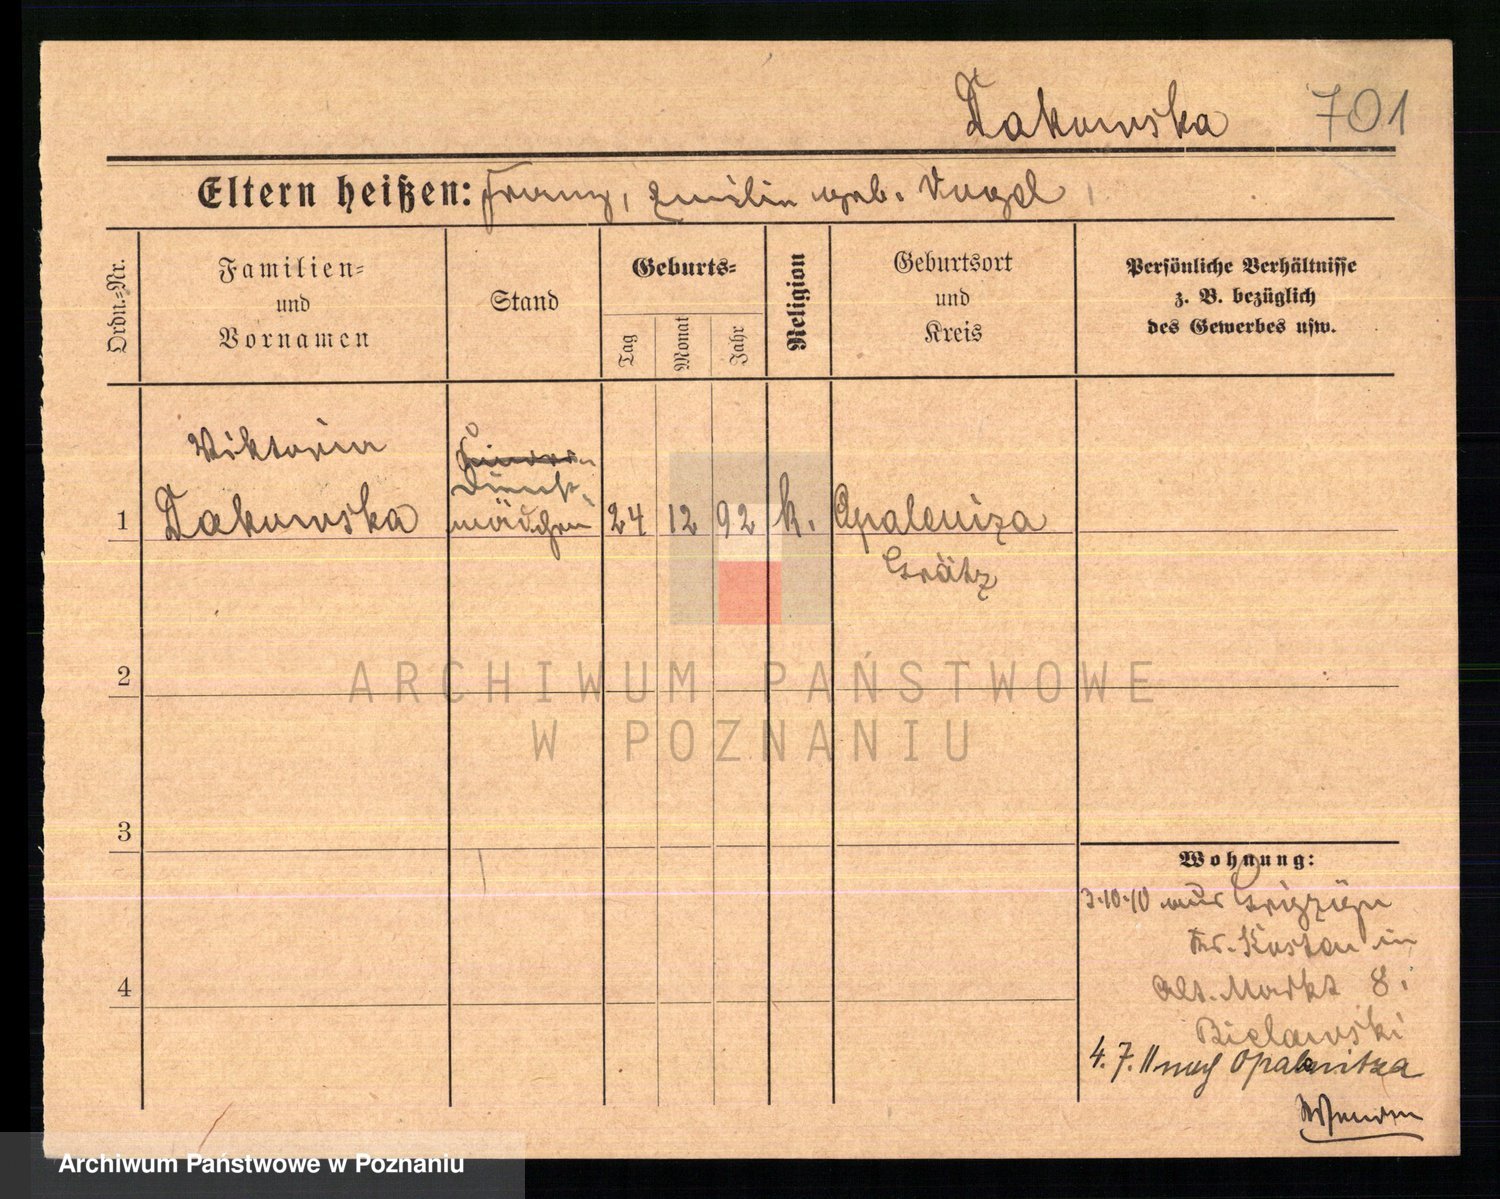 Żakowska 701
Eltern heißen: Franz, Emilie geb. Vogel
Ordn.-Nr.
Familien-
und
Vornamen
Stand
Geburts-
Tag
Monat
Jahr
Religion
Geburtsort
und
Kreis
Persönliche Verhältnisse
z. B. bezüglich
des Gewerbes usw.
Viktoria
1 Żakowska
Dienst-
mädchen
24 12 92 k. Opaleniza
Grätz
2
3
4
Wohnung:
3.10.10 aus
Kr. Kosten in
Alt. Markt 8 i
Bielawski
4.7.11 nach Opalenitza
ARCHIWUM PAŃSTWOWE
W POZNANIU
Archiwum Państwowe w Poznaniu